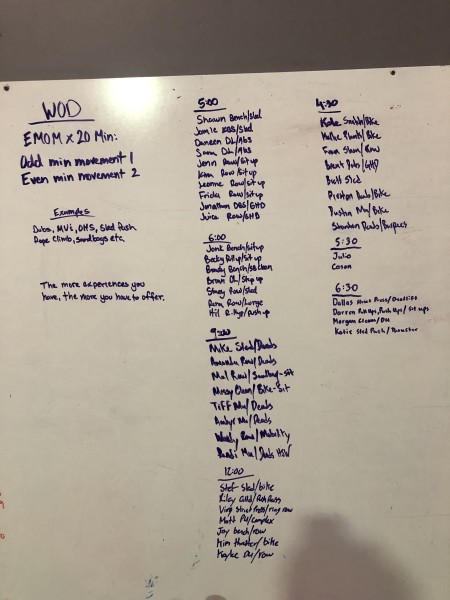 WOD
EMOM x 20 Min:
Odd min movement 1
Even min movement 2
Examples
Dubs, MVi, OHS, Sled Push
Rope Climb, Sandbags etc.
The more experiences you
have, the more you have to offer.
5:00
Shawn Bench/Sled
Jamie KBS/Sled
Daneen DL/Abs
Sam DL/Abs
Jenn Row/Sit up
Kim Row/Sit up
Leanne Row/Sit up
Fricke Row/Sit up
Jonathan DBS/GHD
Juice Row/GHD
6:00
Jonk Bench/situp
Becky Pullup/sit up
Brady Bench/SB clean
Brown DL/Step up
Stacy Row/Sled
Row/Lunge
Hil /Push up
9:00
Mike Sled/Deads
Amanda Row/Deads
Mel Row/Sandbag-sit
Missy Clean/Bike-Sit
Tiff Mu/Deads
Andy Mu/Deads
Wendy Row/Mobility
Mu/Deads HSW
12:00
Stef Sled/bike
Riley
Virg Strict Press/ring row
Matt PU/complex
Jay bench/row
Kim thruster/bike
Kaylee DU/row
4:30
Kate Snatch/Bike
/Bike
/Row
Brent /GHD
Britt Sled
Preston /Bike
Dustin Mu/Bike
/Burpees
5:30
Julio
Cason
6:30
Dallas Strict Press/Deadlift
Darren Pull Ups, Push Ups/Sit ups
Morgan Cleans/DU
Katie Sled Push/Thruster